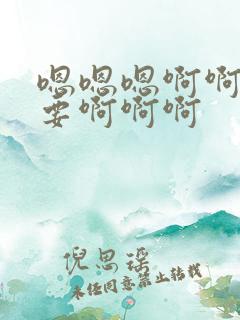 嗯嗯嗯啊啊
要啊啊啊
倪思瑶
未经同意禁止转载